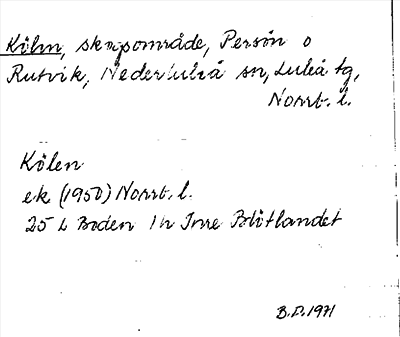 Kölen, skogsområde, Persön o
Rutvik, Nederluleå sn, Luleå tg,
Norrb. l.
Kölen
ek (1950) Norrb. l.
25 L Boden 1h Inre
B.D. 1971